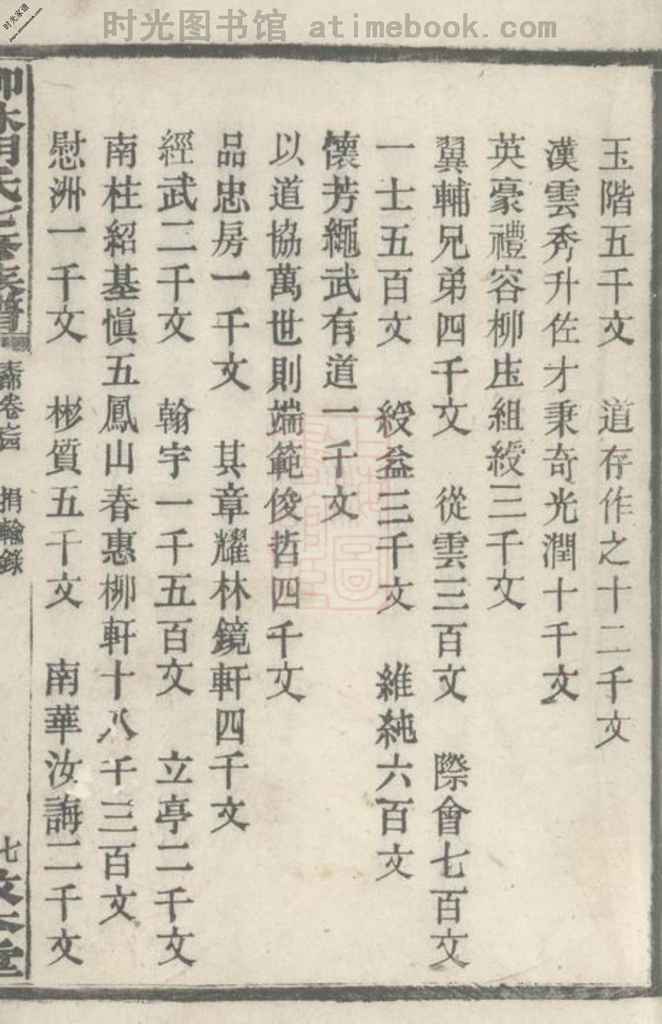 时光图书馆 - atimebook.com
时光家谱
玉階五千文　道存作之十二千文
漢雲秀升佐才秉奇光潤十千文
英豪禮容柳庄組綬三千文
翼輔兄弟四千文　從雲三百文　際會七百文
一士五百文　綬益三千文　維純六百文
懷芳繩武有道一千文
以道協萬世則端範俊哲四千文
品忠房一千文　其章耀林鏡軒四千文
經武二千文　翰宇一千五百文　立亭二千文
南柱紹基愼五鳳山春惠柳軒十八千三百文
慰洲一千文　彬質五千文　南華汝誨二千文
氏七修族譜　卷　捐輸錄　七